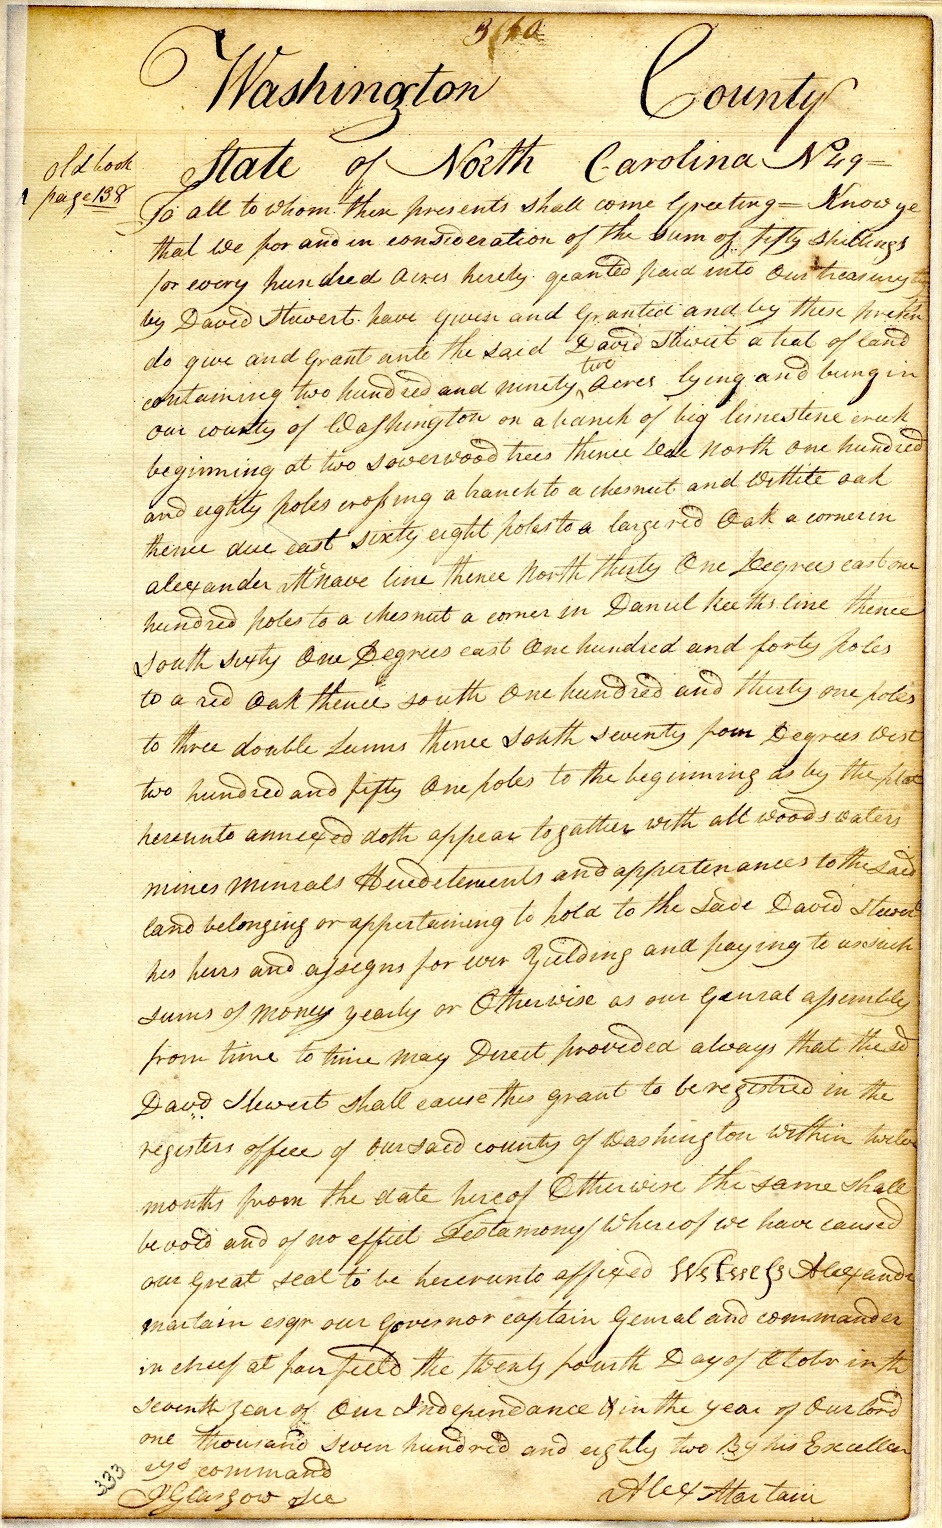 Washington County
State of North Carolina No 49 =
old book
page 138
To all to whom these presents shall come Greeting = Know ye
that we for and in consideration of the sum of fifty shillings
for every hundred acres hereby granted paid into our treasury
by David Stewert have given and Granted and by these presen
do give and grant unto the said David Stewert a trat of land
containing two hundred and ninety two acres lying and being in
our county of Washington on a branch of big limestine creek
beginning at two sowerwood trees thence due North one hundred
and eighty poles crossing a branch to a chesnut and White oak
thence due east sixty eight poles to a large red Oak a corner in
alexander McNave line thence North thirty One Degrees east one
hundred poles to a chesnut a corner in Daniel Keeths line thence
South sixty One Degrees east One hundred and forty poles
to a red Oak thence south One hundred and thirty one poles
to three double thence South seventy four Degrees West
two hundred and fifty One poles to the beginning as by the plat
hereunto annexed doth appear togather with all woods waters
mines minrals Heredetements and appertenances to the said
land belonging or appertaining to hold to the sade David Stewert
his heirs and assigns for ever Yielding and paying to us such
sums of money yearly or Otherwise as our Genral assembly
from time to time may Direct provided always that the sd
Davd Stewert shall cause this grant to be registred in the
registers office of our said county of Washington within twelve
months from the date hereof Otherwise the same shall
be void and of no effect Testamony Whereof we have caused
our great seal to be hereunto affixed Witness Alexandr
martain esqr our Governor captain Genral and commander
in cheif at fairfield the twenty fourth Day of Octobr in th
seventh year of Our Independance & in the year of Our lord
one thousand seven hundred and eighty two By his Excellen
cys command
J Glasgow Sec Alex Martain
333